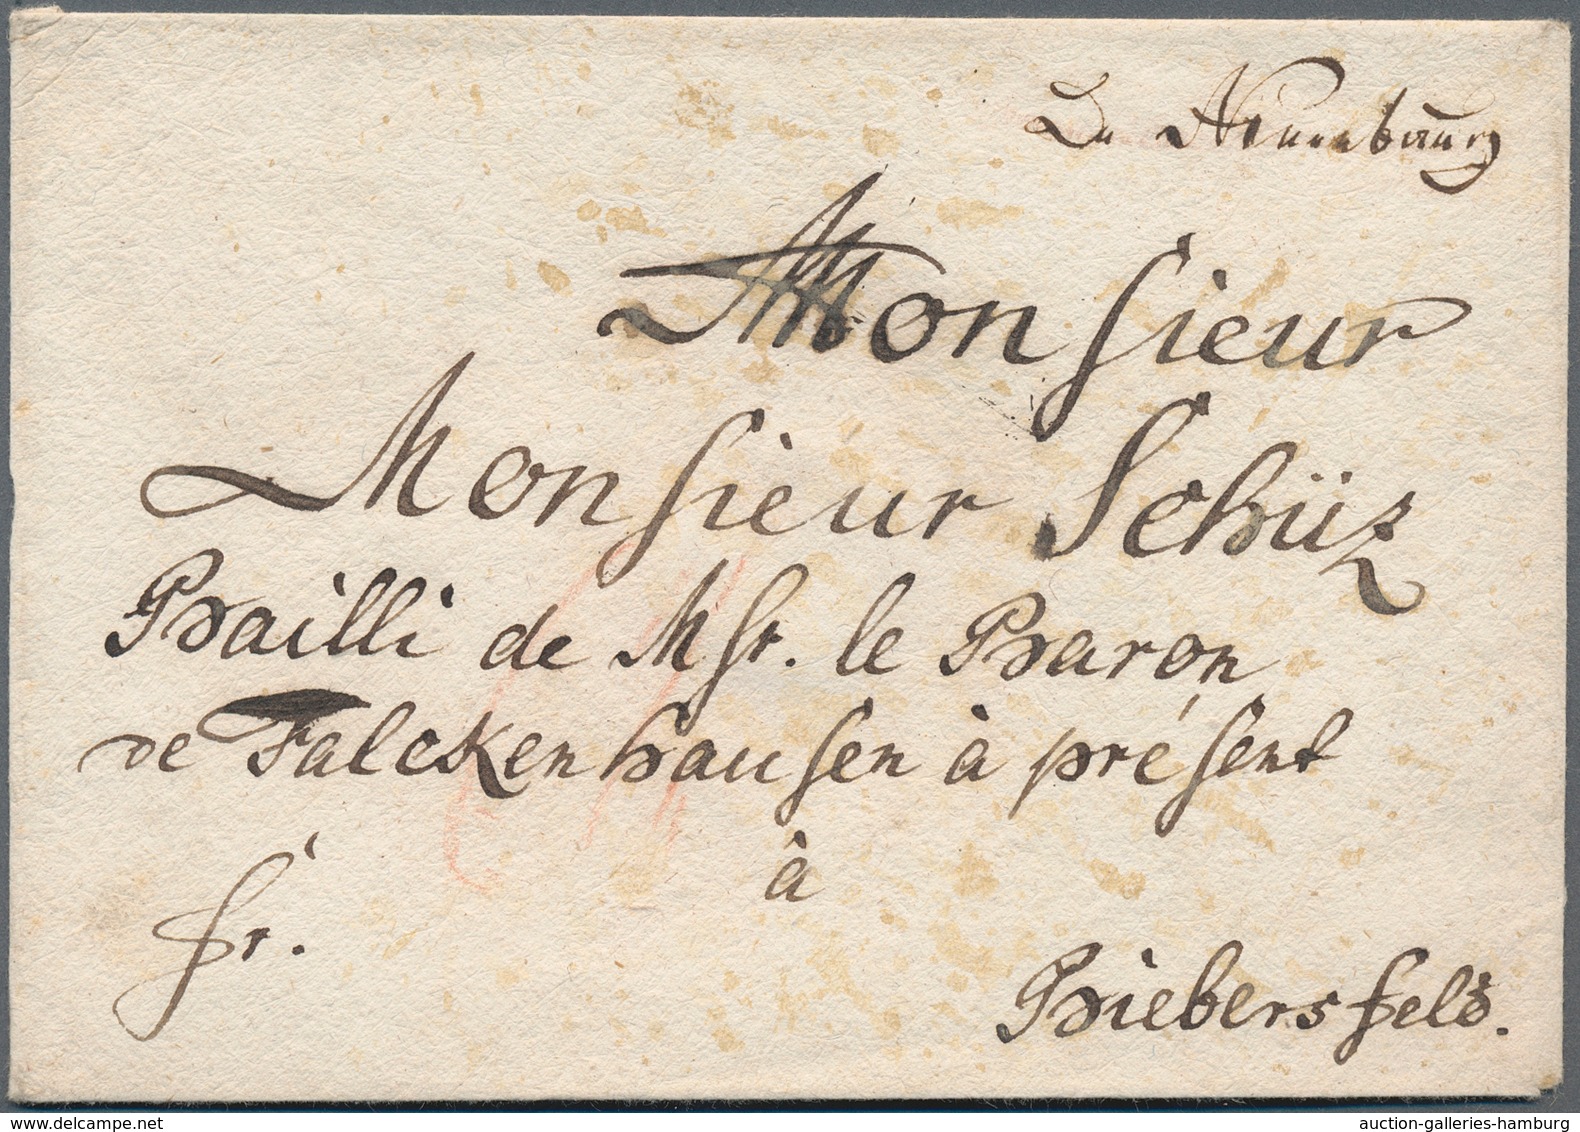 De Nuremburg
Monsieur
Monsieur Schüz
Bailli de Msr. le Baron
de Falckenhausen à présent
à
fr.
Biebersfeld.
delcampe.net
auction-galleries-hamburg